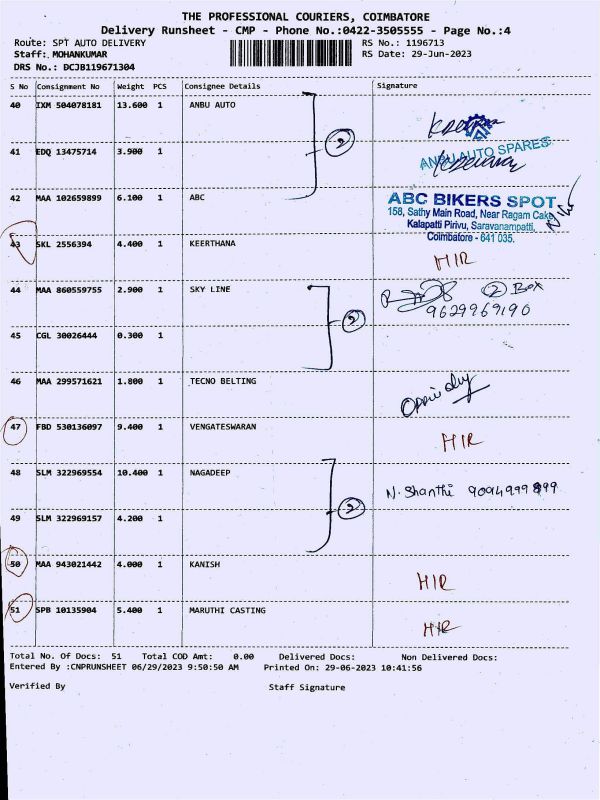 THE PROFESSIONAL COURIERS, COIMBATORE
Delivery Runsheet - CMP - Phone No.:0422-3505555 - Page No.:4
Route: SPT AUTO DELIVERY RS No.: 1196713
Staff: MOHANKUMAR RS Date: 29-Jun-2023
DRS No.: DCJB119671304
S No Consignment No Weight PCS Consignee Details Signature
40 IXM 504078181 13.600 1 ANBU AUTO
41 EDQ 13475714 3.900 1
2
ANBU AUTO SPARES
42 MAA 102659899 6.100 1 ABC
ABC BIKERS SPOT
158, Sathy Main Road, Near Ragam Cake
Kalapatti Pirivu, Saravanampatti,
Coimbatore - 641 035.
43 SKL 2556394 4.400 1 KEERTHANA
HIR
44 MAA 860559755 2.900 1 SKY LINE
2 Box
9629969190
2
45 CGL 30026444 0.300 1
46 MAA 299571621 1.800 1 TECNO BELTING
47 FBD 530136097 9.400 1 VENGATESWARAN
HIR
48 SLM 322969554 10.400 1 NAGADEEP
N. Shanthi 9094999899
2
49 SLM 322969157 4.200 1
50 MAA 943021442 4.000 1 KANISH
HIR
51 SPB 10135904 5.400 1 MARUTHI CASTING
HIR
Total No. Of Docs: 51 Total COD Amt: 0.00 Delivered Docs: Non Delivered Docs:
Entered By :CNPRUNSHEET 06/29/2023 9:50:50 AM Printed On: 29-06-2023 10:41:56
Verified By Staff Signature